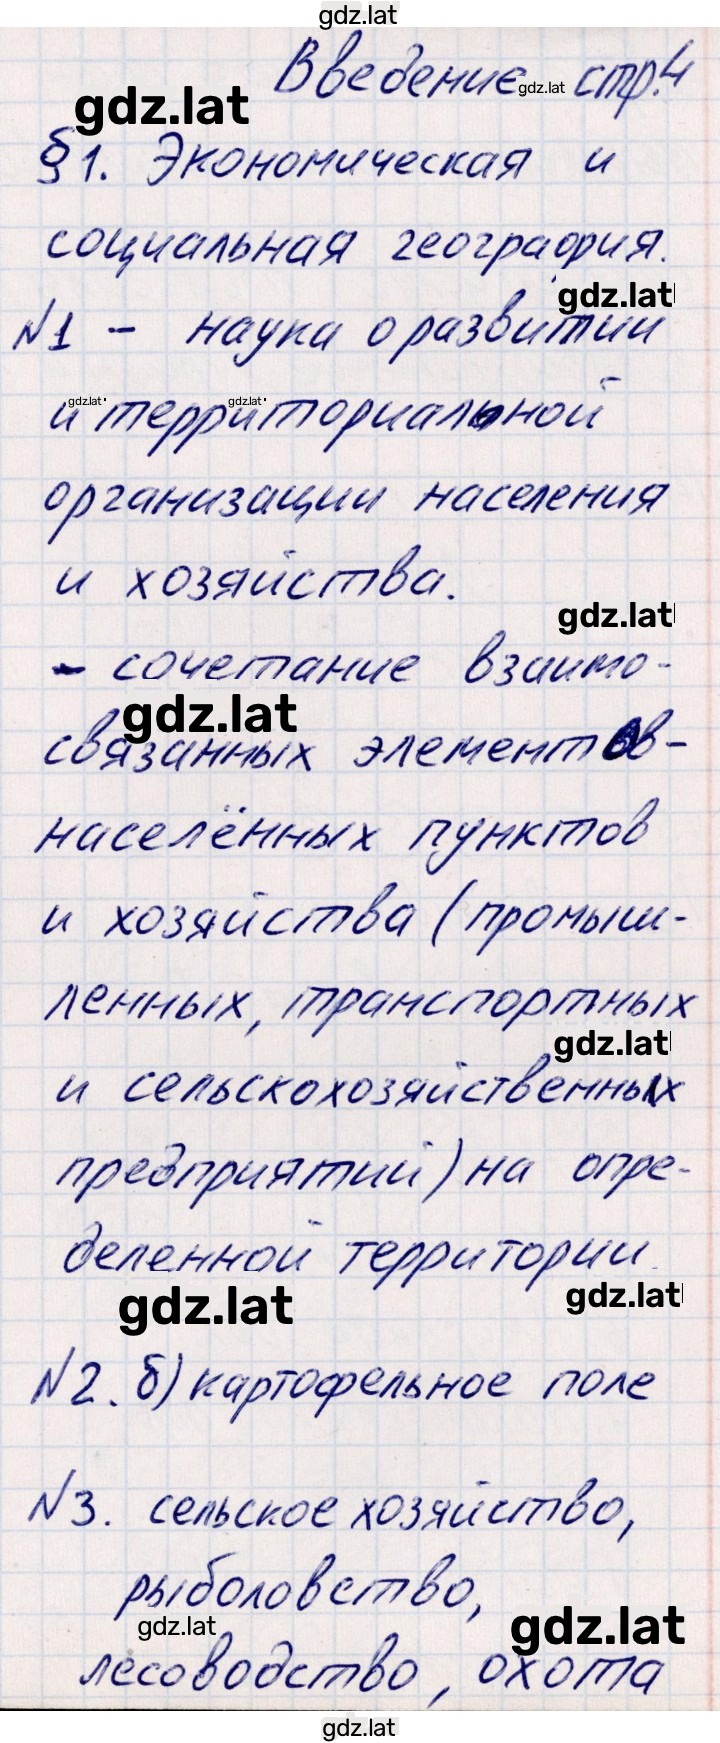 gdz.lat
Введение gdz.lat стр.4
gdz.lat
§1. Экономическая и
социальная география.
gdz.lat
№1 - наука о развитии
gdz.lat gdz.lat
и территориальной
организации населения
и хозяйства.
gdz.lat
- сочетание взаимо-
gdz.lat
связанных элементов-
населённых пунктов
и хозяйства (промыш-
ленных, транспортных
gdz.lat
и сельскохозяйственных
предприятий) на опре-
деленной территории.
gdz.lat gdz.lat
№2. б) картофельное поле
№3. сельское хозяйство,
рыболовство,
gdz.lat gdz.lat
лесоводство, охота
gdz.lat